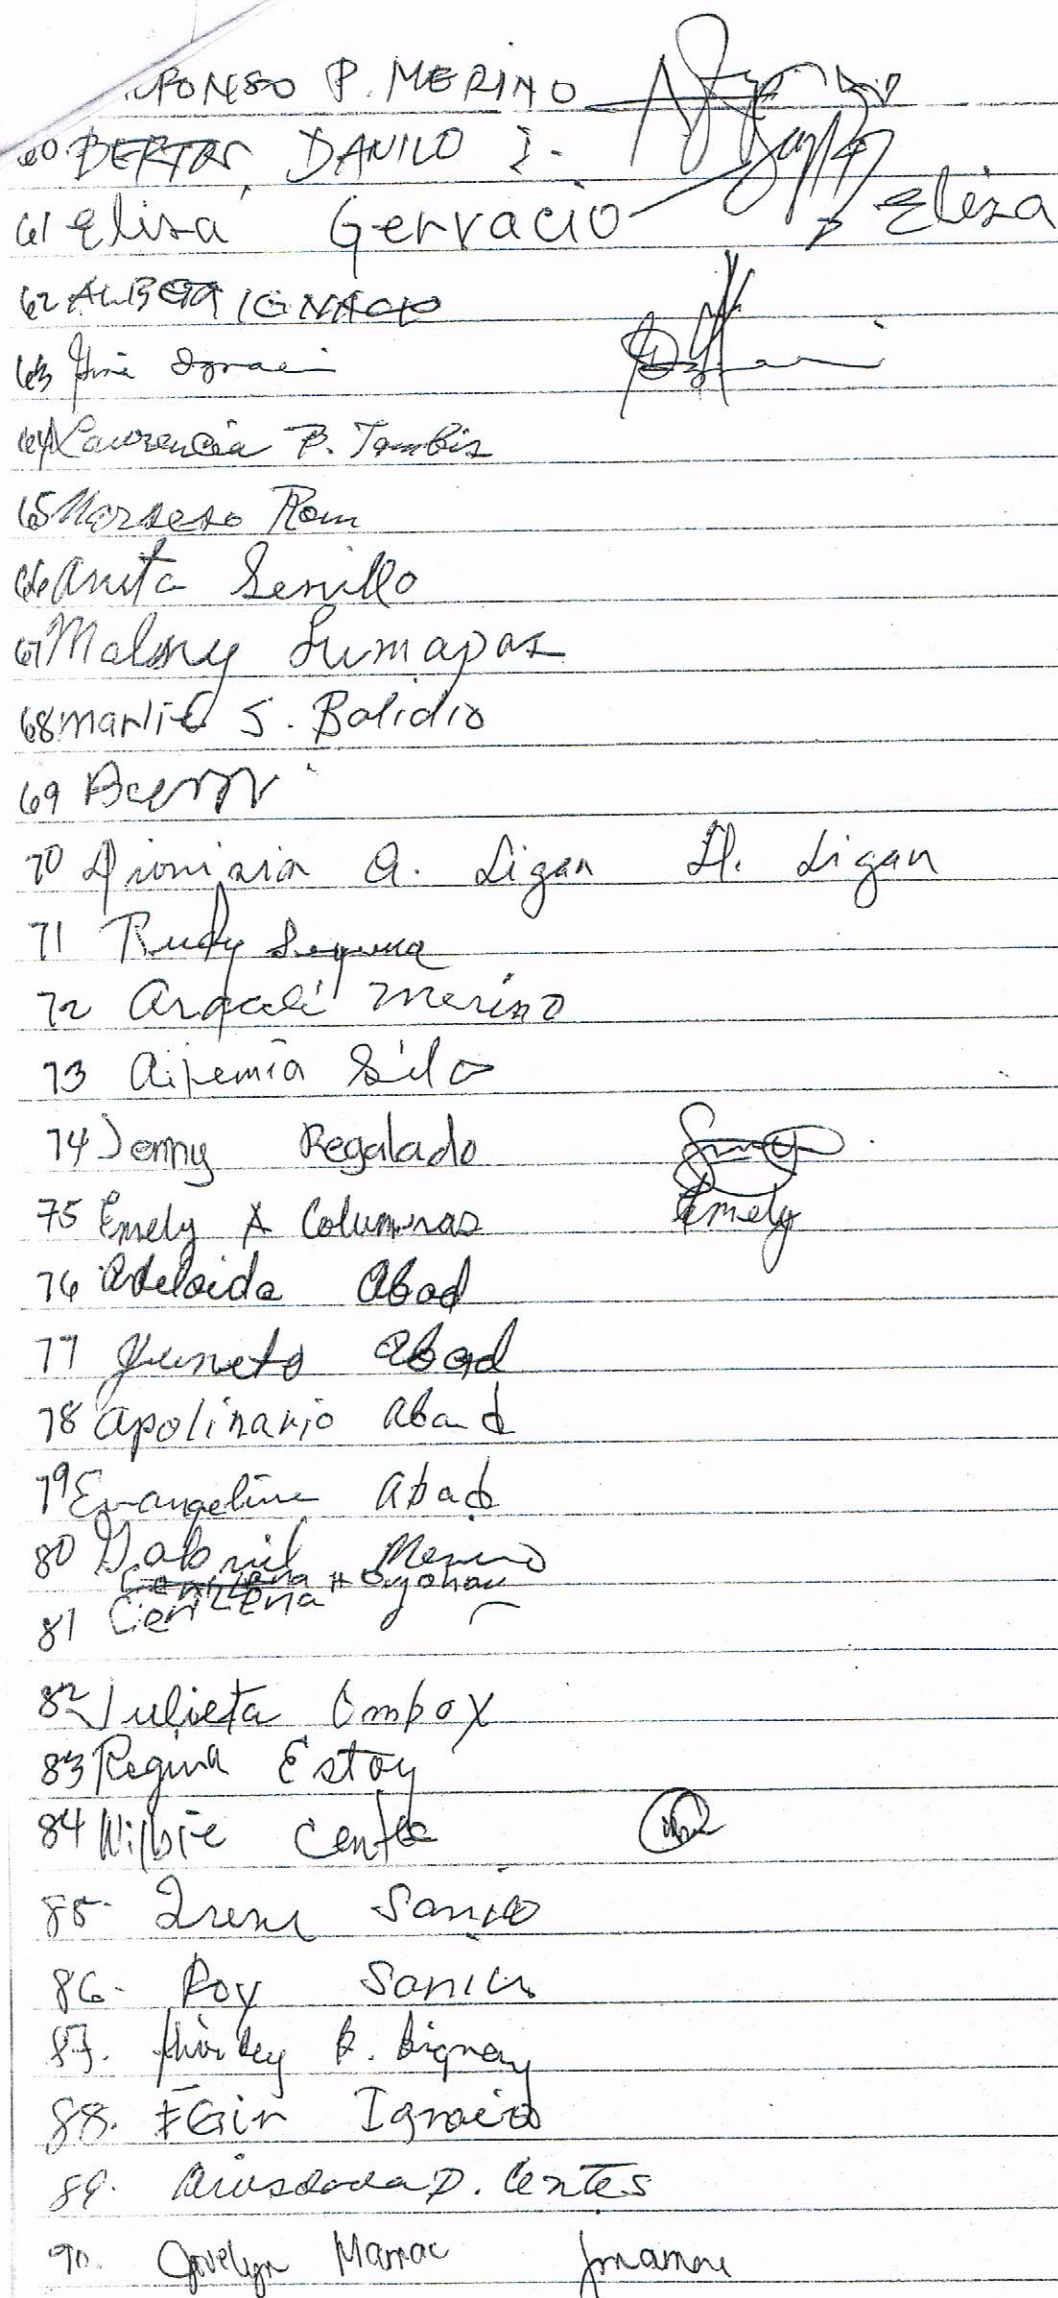 FONSO P. MERINO
60 BERTOS, DANILO I.
61 Elisa Gervacio Elisa
62 ALBETA IGNACIO
63 Gina Ignaci
64 Laurencia B. Tambis
65 Rom
66 Anita Senillo
67 Malony Sumapas
68 Marlie S. Balidio
69
70 Dionisia A. Ligan D. Ligan
71 Rudy Segura
72 Araceli Merino
73 Aifemia Sila
74 Jenny Regalado
75 Emely A Columnas Emely
76 Adelaida Abad
77 Juneto Abad
78 Apolinario Abad
79 Evangeline Abad
80 Gabriel Merino
81
82 Julieta Ombox
83 Regina Estoy
84 Wilbie Cente
85. Irene Sanico
86. Roy Sanico
87. Shirley B. Bignay
88. EGin Ignacio
89. D. Centes
90. Jovelyn Mamac